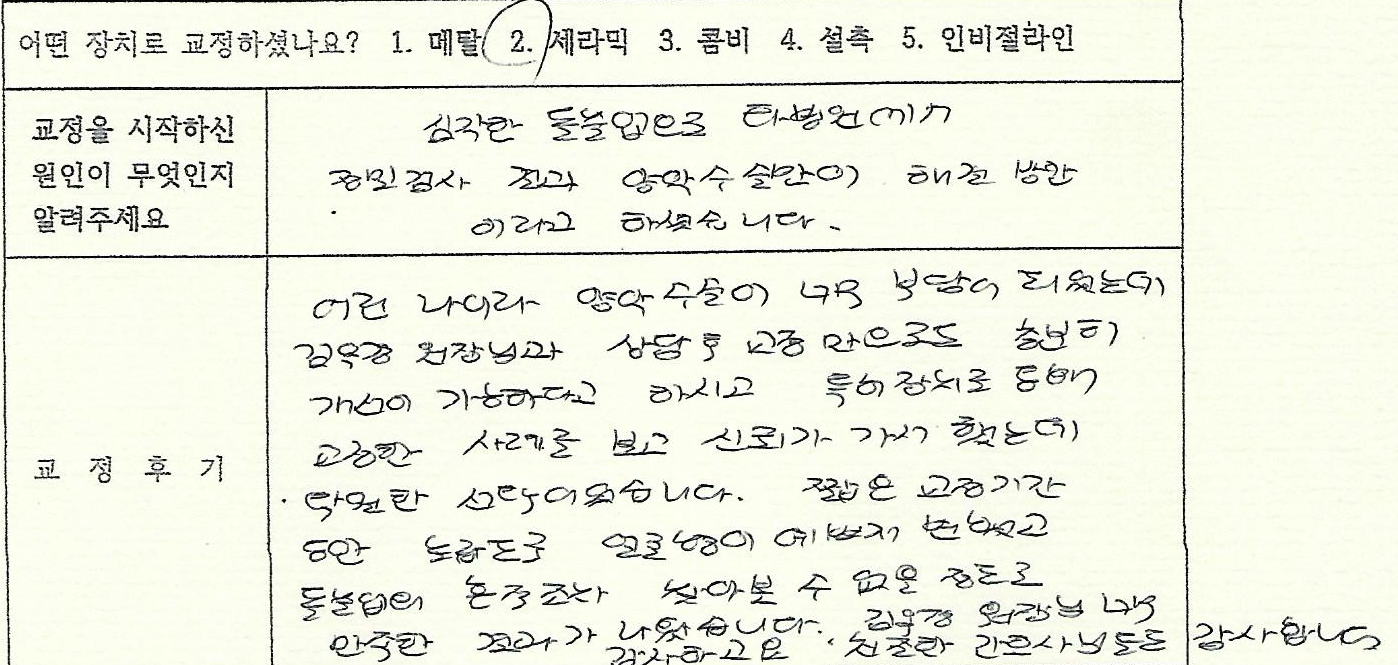 어떤 장치로 교정하셨나요? 1. 메탈 2. 세라믹 3. 콤비 4. 설측 5. 인비절라인
교정을 시작하신
원인이 무엇인지
알려주세요
심각한 돌출입으로 타병원에서
정밀검사 결과 양악수술만이 해결 방안
이라고 하셨습니다.
교 정 후 기
어린 나이라 양악수술이 너무 부담이 되었는데
원장님과 상담 후 교정 만으로도 충분히
개선이 가능하다고 하시고 특허장치로
교정한 사례를 보고 신뢰가 가서 했는데
탁월한 선택이었습니다. 짧은 교정기간
동안 놀랍도록 얼굴형이 예쁘게 변했고
돌출입의 흔적조차 찾아볼 수 없을 정도로
만족한 결과가 나왔습니다. 원장님 너무
감사하고요 친절한 간호사님들도 감사합니다